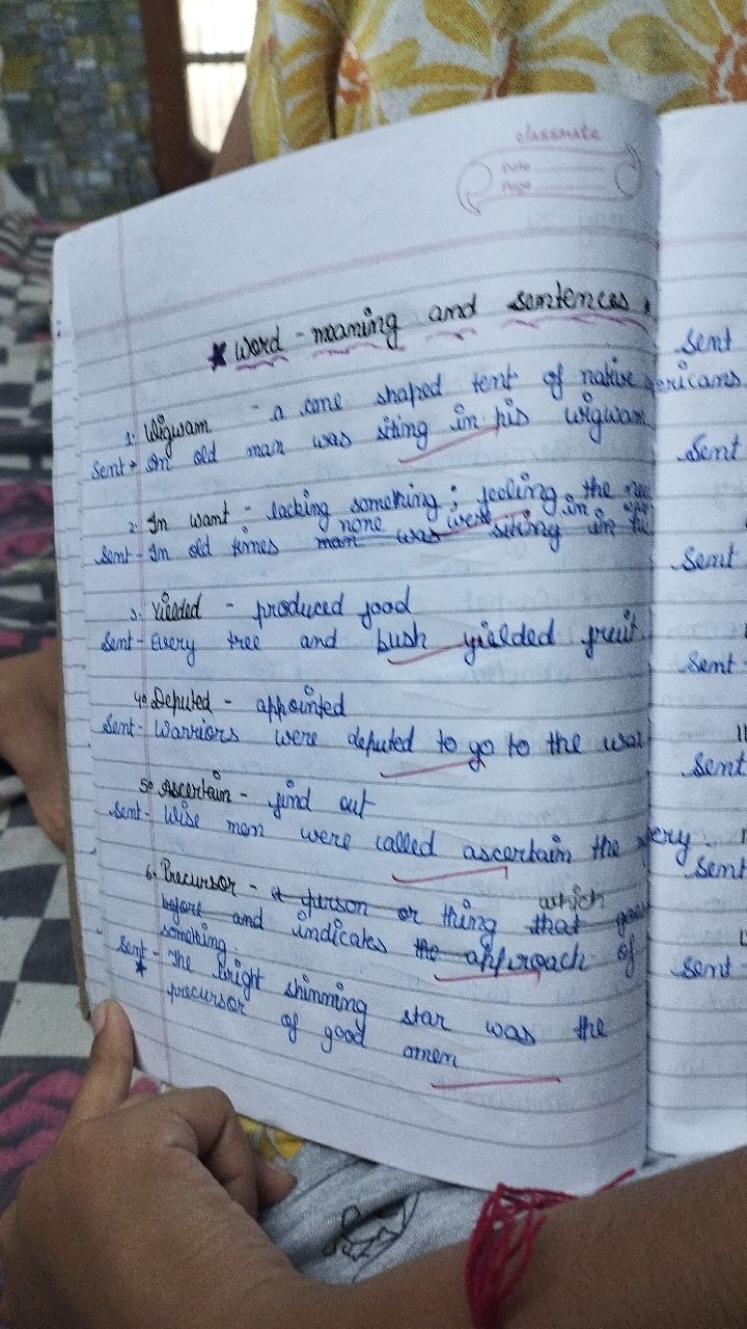 classmate
Date
Page
★ Word - meaning and sentences.
1. Wigwam - a cone shaped tent of native ericans.
Sent → An old man was siting in his wigwam
2. In want - lacking something; feeling the
Sent - In old times man none was were siting in
3. Yielded - produced food
Sent - Every tree and bush yielded fruit.
4. Deputed - appointed
Sent - Warriors were deputed to go to the war
5. Ascertain - find out
Sent - Wise men were called ascertain the
6. Precursor - a person or thing that which goes
before and indicates the approach of
something.
Sent - The bright shinning star was the
★ precursor of good omen
Sent
Sent
Sent
Sent -
Sent
Sent
Sent -